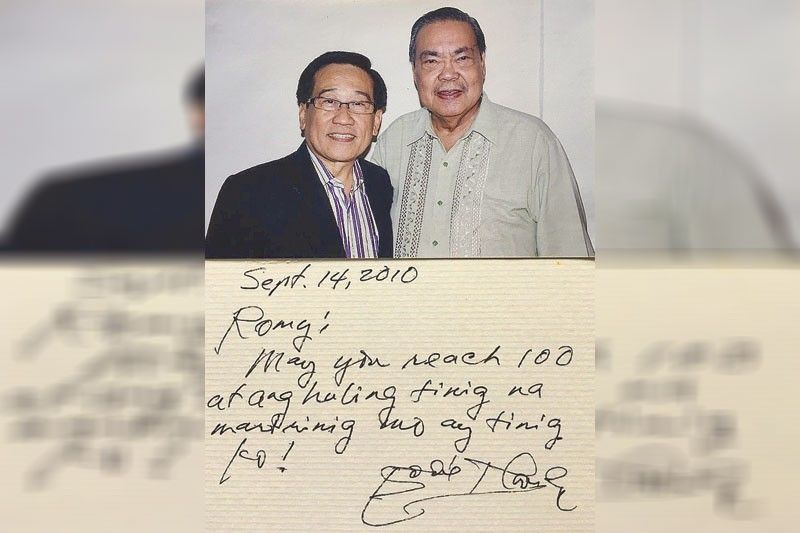 Sept. 14, 2010
Romy!
May you reach 100
at ang huling tinig na
maririnig mo ay tinig
ko!